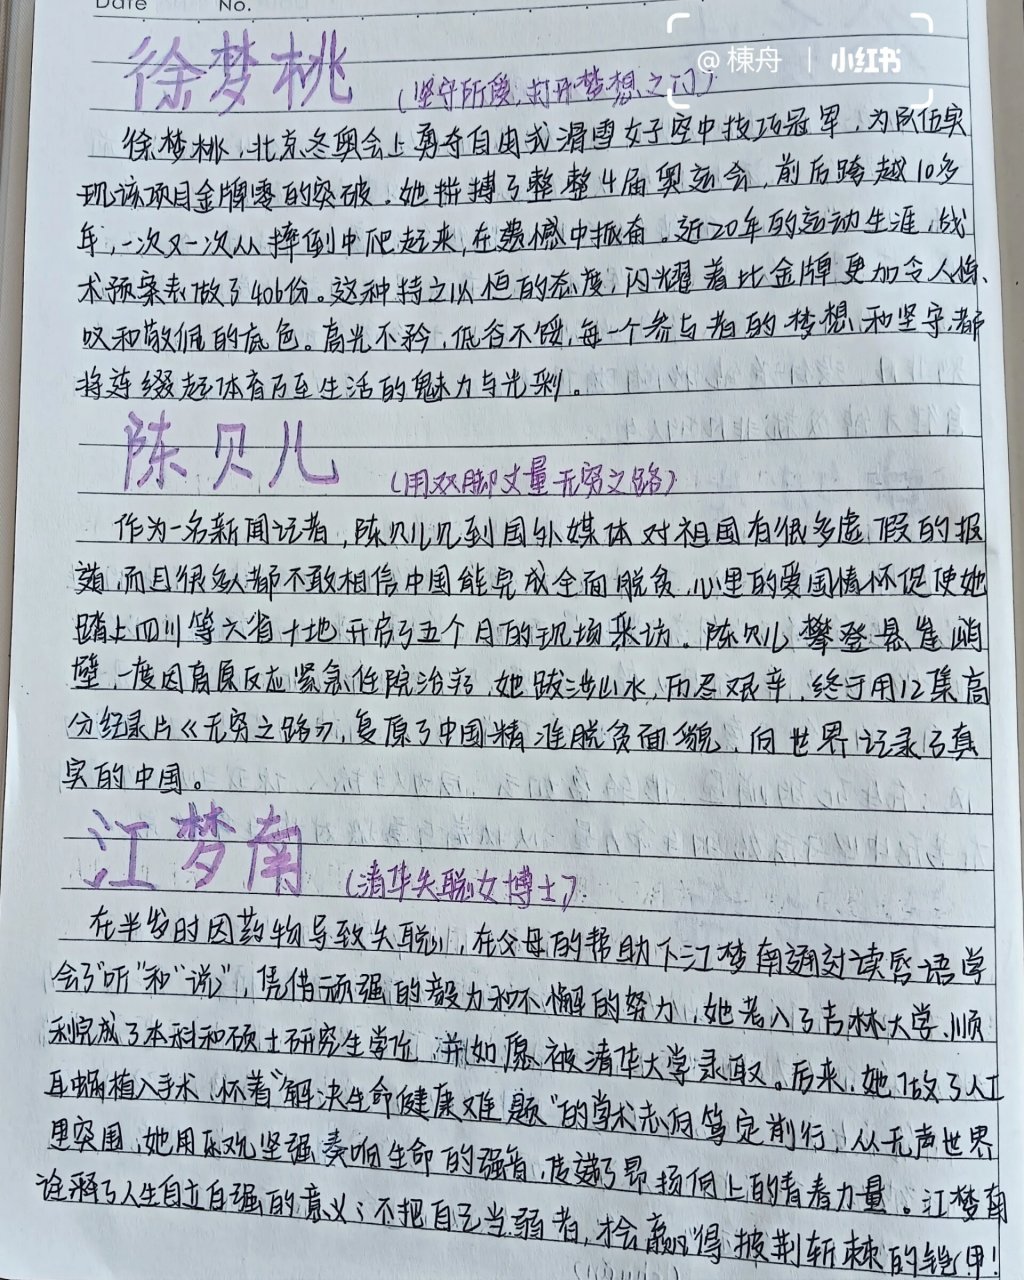 Date No.
@棟舟 | 小红书
徐梦桃 (坚守所爱,打开梦想之门)
徐梦桃,北京冬奥会上勇夺自由式滑雪女子空中技巧冠军,为队伍实
现该项目金牌零的突破。她拼搏了整整4届奥运会,前后跨越10多
年,一次又一次从摔倒中爬起来,在遗憾中振奋。近20年的运动生涯,战
术预案表做了406份。这种持之以恒的态度,闪耀着比金牌更加令人惊
叹和敬佩的底色。高光不矜,低谷不馁,每一个参与者的梦想和坚守,都
将连缀起体育乃至生活的魅力与光彩。
陈贝儿 (用双脚丈量无穷之路)
作为一名新闻记者,陈贝儿见到国外媒体对祖国有很多虚假的报
道,而且很多人都不敢相信中国能完成全面脱贫,心里的爱国情怀促使她
踏上四川等六省十地开启了五个月的现场采访。陈贝儿攀登悬崖峭
壁,一度因高原反应紧急住院治疗,她跋涉山水,历尽艰辛,终于用12集高
分纪录片《无穷之路》,复原了中国精准脱贫面貌,向世界记录了真
实的中国。
江梦南 (清华失聪女博士)
在半岁时因药物导致失聪,在父母的帮助下江梦南通过读唇语学
会了"听"和"说",凭借顽强的毅力和不懈的努力,她考入了吉林大学,顺
利完成了本科和硕士研究生学位,并如愿被清华大学录取。后来,她做了人工
耳蜗植入手术,怀着"解决生命健康难题"的学术志向笃定前行,从无声世界
里突围,她用乐观坚强奏响生命的强音,传递了昂扬向上的青春力量。江梦南
诠释了人生自立自强的意义:不把自己当弱者,才会赢得披荆斩棘的铠甲!